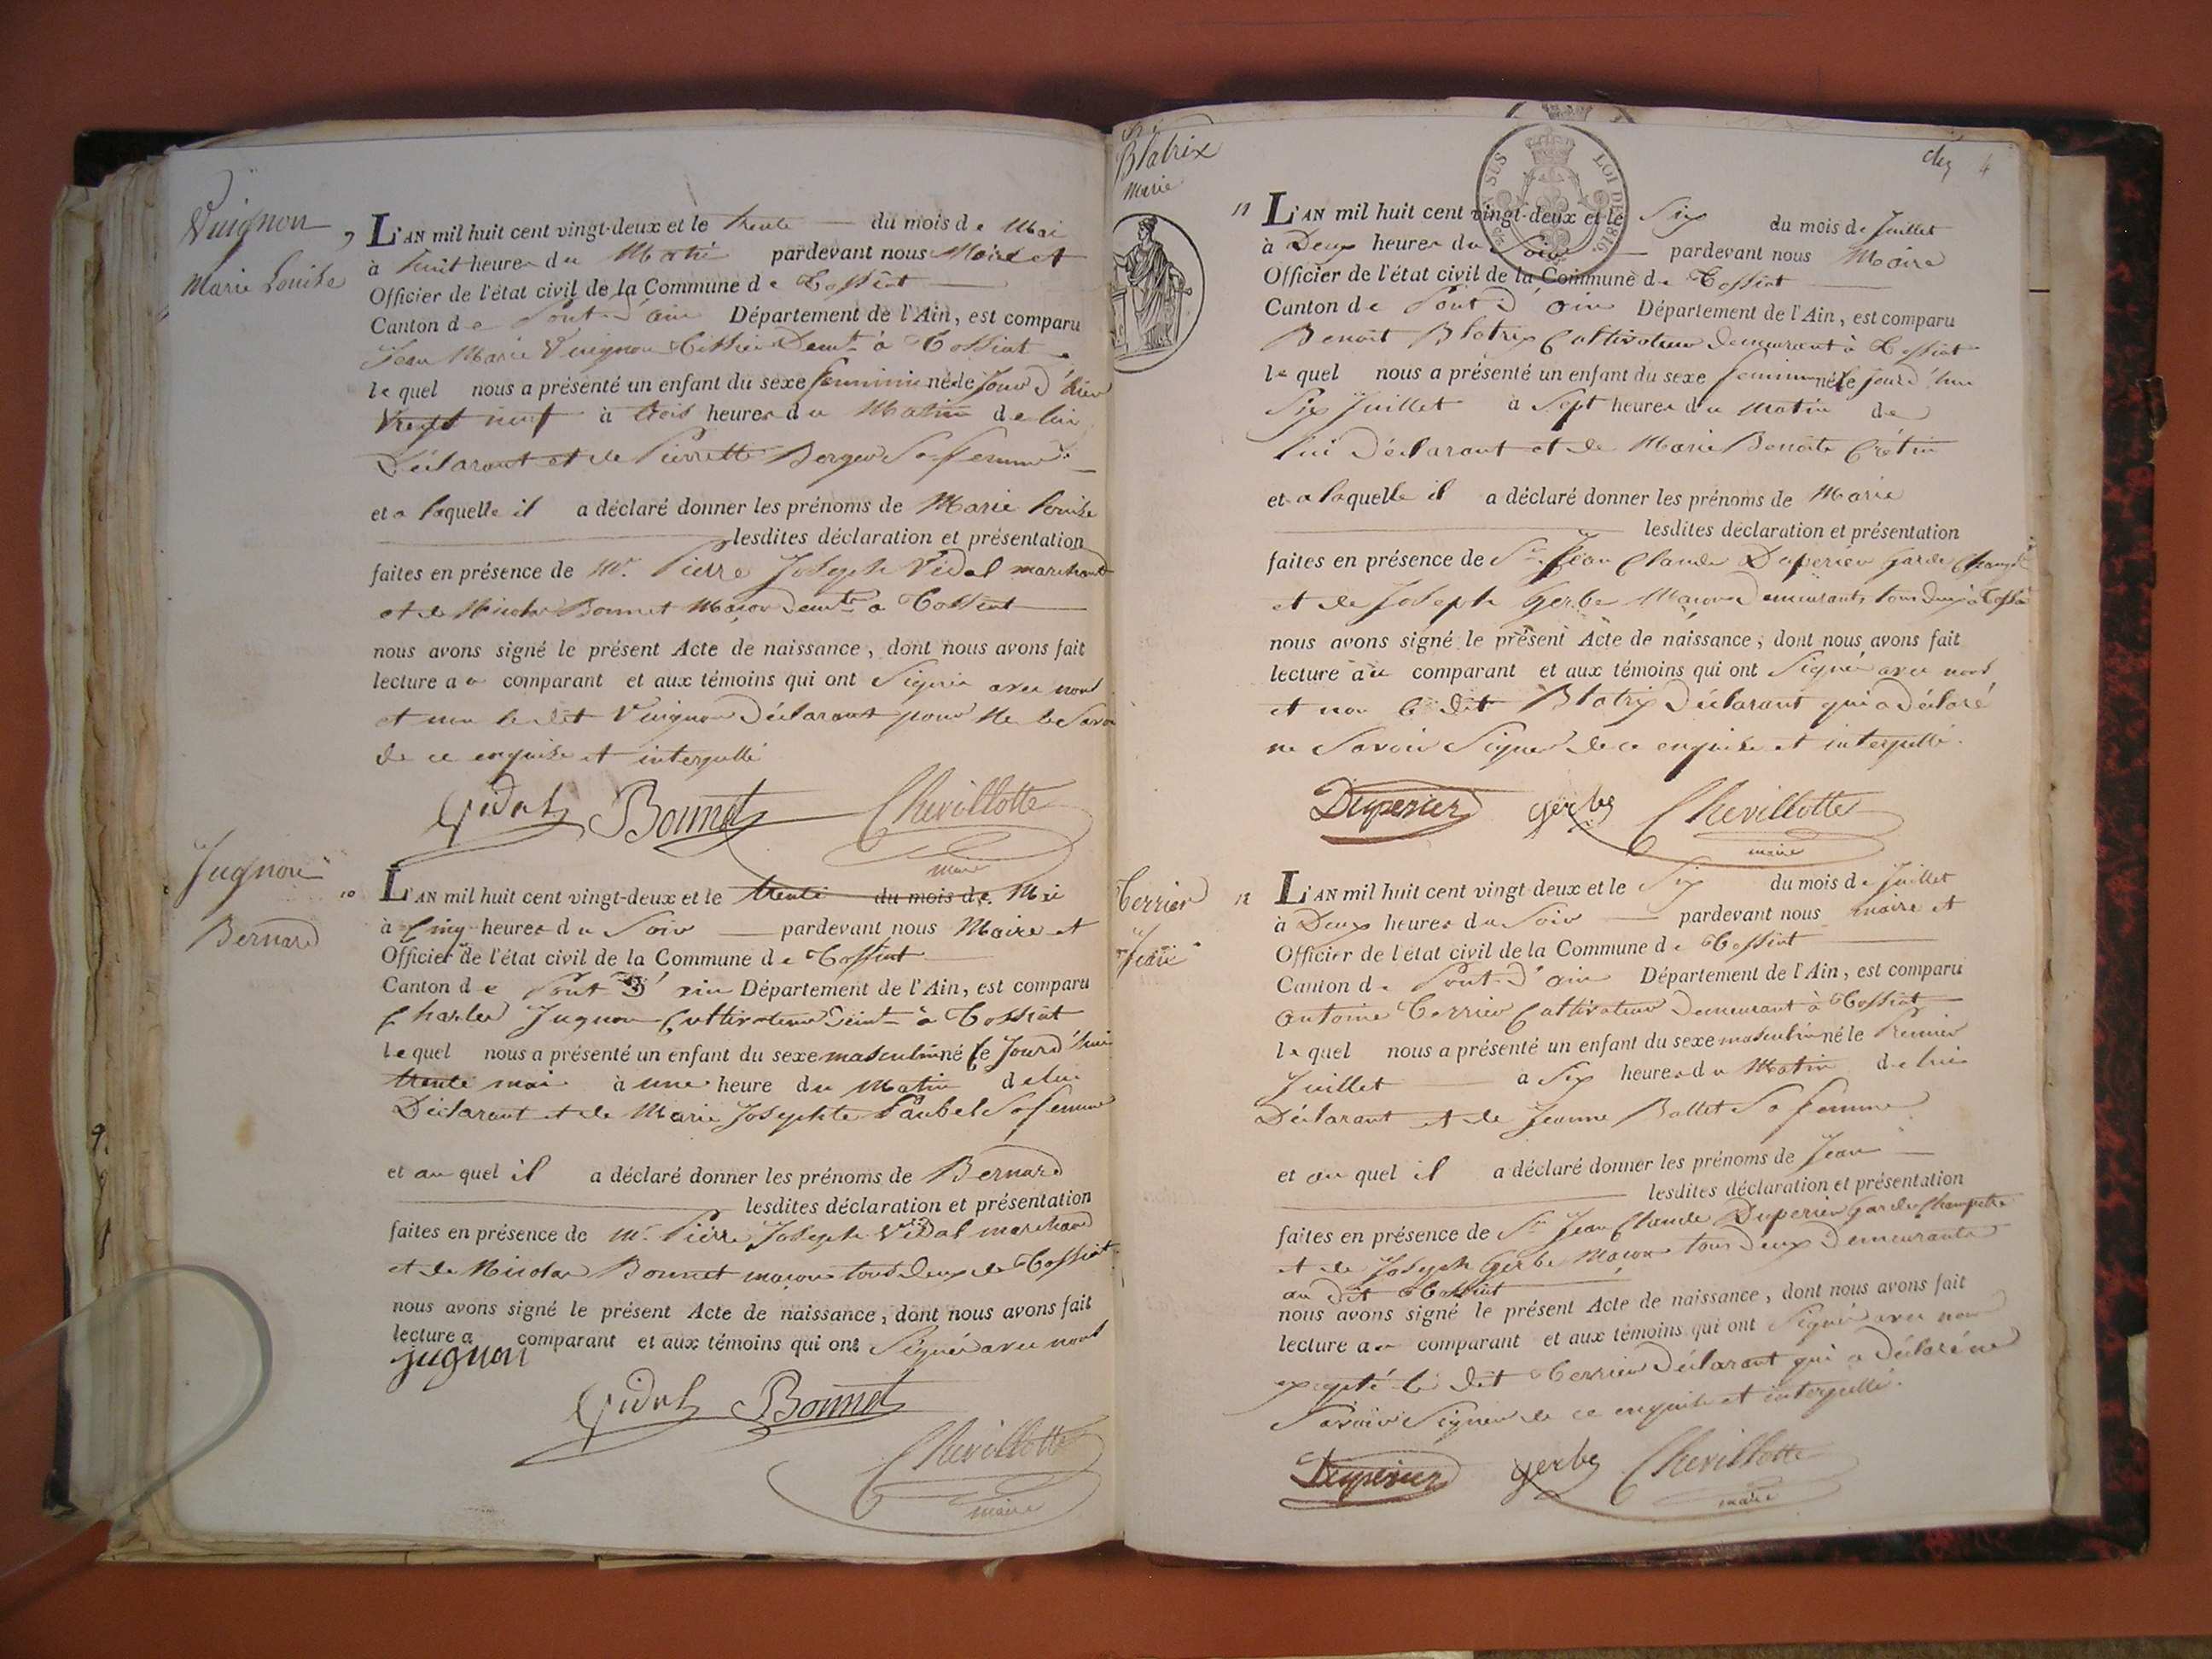 Vuignon
Marie Louise
9
L'AN mil huit cent vingt-deux et le trente du mois de Mai
à huit heures du Matin pardevant nous Maire et
Officier de l'état civil de la Commune de Tossiat
Canton de Pont-d'ain Département de l'Ain, est comparu
Jean Marie Vuignon Demt à Tossiat
le quel nous a présenté un enfant du sexe feminin né le Jour d'hier
Vingt neuf à trois heures du Matin de lui
Déclarant et de Pierrette Berger Sa femme
et a laquelle il a déclaré donner les prénoms de Marie Louise
lesdites déclaration et présentation
faites en présence de Mr. Pierre Joseph Vidal marchand
et de Nicolas Bonnet Maçon Demts a Tossiat
nous avons signé le présent Acte de naissance, dont nous avons fait
lecture au comparant et aux témoins qui ont Signés avec nous
et non le dit Vuignon Déclarant pour ne le Savoir
de ce enquise et interpellé
Vidal Bonnet Chevillotte
maire
Jugnon
Bernard
10
L'AN mil huit cent vingt-deux et le trente du mois de Mai
à Cinq heures du Soir pardevant nous Maire et
Officier de l'état civil de la Commune de Tossiat
Canton de Pont D'ain Département de l'Ain, est comparu
Charles Jugnon Cultivateur Demt à Tossiat
le quel nous a présenté un enfant du sexe masculin né le Jourd'hui
trente mai à une heure du Matin de lui
Déclarant et de Marie Josephte Paubel Sa femme
et au quel il a déclaré donner les prénoms de Bernard
lesdites déclaration et présentation
faites en présence de Mr. Pierre Joseph Vidal marchand
et de Nicolas Bonnet maçon tous deux de Tossiat
nous avons signé le présent Acte de naissance, dont nous avons fait
lecture a comparant et aux témoins qui ont Signés avec nous
jugnon
Vidal Bonnet
Chevillotte
maire
Blatrix
marie
LOI DE 1816.
4
11
L'AN mil huit cent vingt-deux et le Six du mois de Juillet
à Deux heures du Soir pardevant nous Maire
Officier de l'état civil de la Commune de Tossiat
Canton de Pont D'ain Département de l'Ain, est comparu
Benoit Blatrix Cultivateur demeurant à Tossiat
le quel nous a présenté un enfant du sexe feminin né le jourd'hui
Six Juillet à Sept heures du Matin de
lui Déclarant et de Marie Benoite Crétin
et a laquelle il a déclaré donner les prénoms de Marie
lesdites déclaration et présentation
faites en présence de Sr. Jean Claude Duperier Garde Champêtre
et de Joseph Gerbe Maçon Demeurants tous deux à Tossiat
nous avons signé le présent Acte de naissance, dont nous avons fait
lecture au comparant et aux témoins qui ont Signés avec nous
et non le dit Blatrix Déclarant qui a Déclaré
ne Savoir Signer de ce enquise et interpellé.
Duperier gerbe Chevillotte
maire
Terrier
Jean
12
L'AN mil huit cent vingt-deux et le Six du mois de Juillet
à Deux heures du Soir pardevant nous maire et
Officier de l'état civil de la Commune de Tossiat
Canton de Pont-D'ain Département de l'Ain, est comparu
Antoine Terrier Cultivateur Demeurant à Tossiat
le quel nous a présenté un enfant du sexe masculin né le Premier
Juillet à Six heures du Matin de lui
Déclarant et de Jeanne Ballet Sa femme
et au quel il a déclaré donner les prénoms de Jean
lesdites déclaration et présentation
faites en présence de Sr Jean Claude Duperier Garde Champetre
et de Joseph Gerbe Maçon tous deux Demeurants
au Dit Tossiat
nous avons signé le présent Acte de naissance, dont nous avons fait
lecture au comparant et aux témoins qui ont Signés avec nous
excepté le dit Terrier Déclarant qui a Déclaré ne
Savoir Signer de ce enquise et interpellé.
Duperier gerbe Chevillotte
maire